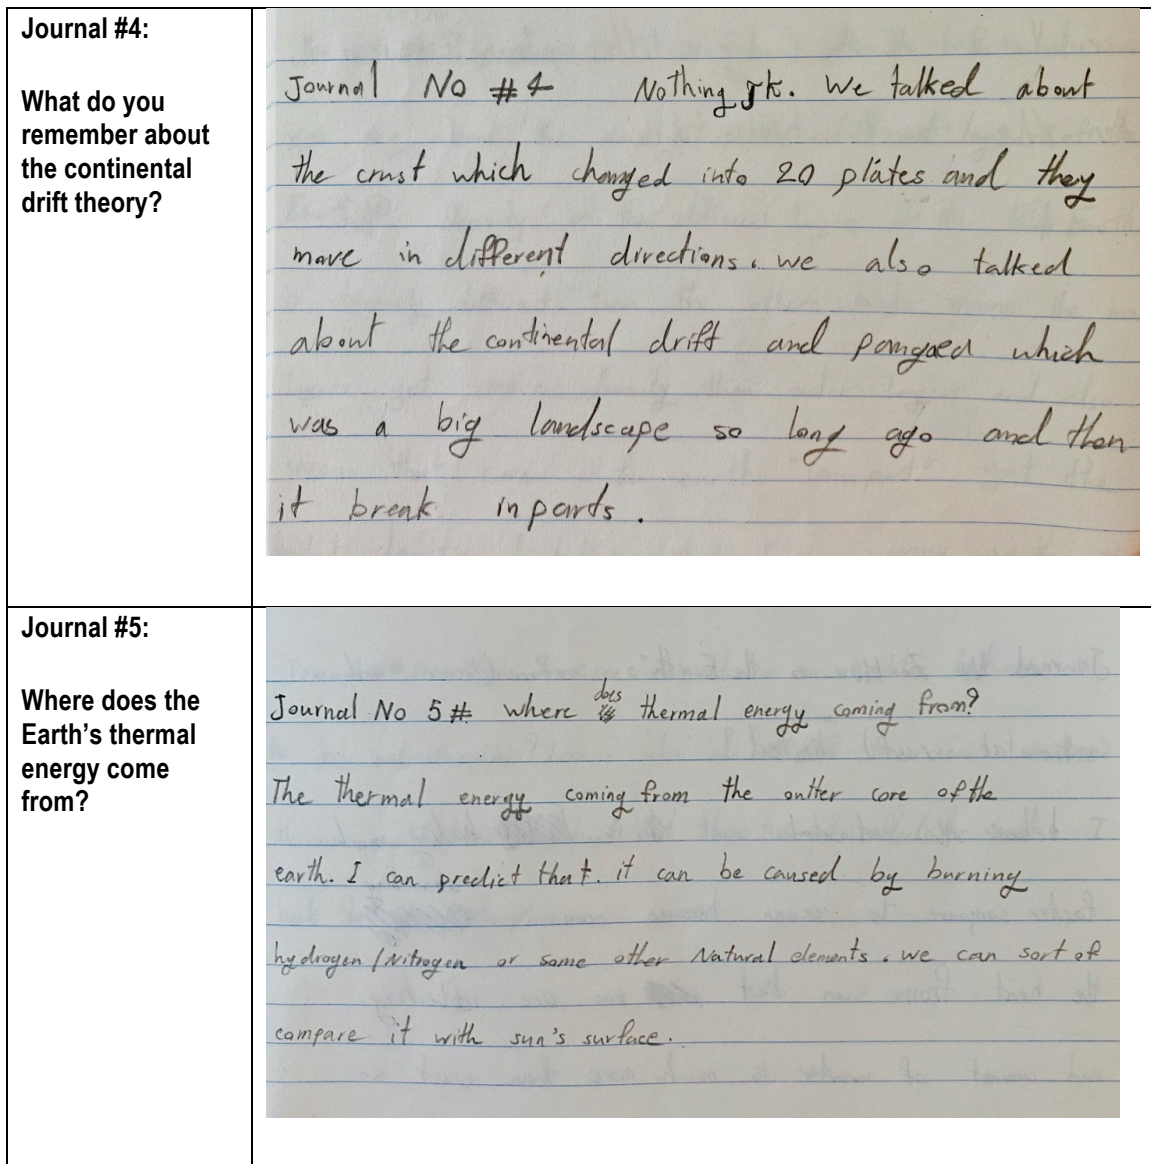 Journal #4:
What do you
remember about
the continental
drift theory?
Journal No #4 Nothing jk. We talked about
the crust which changed into 20 plates and they
move in different directions. we also talked
about the continental drift and pangaea which
was a big landscape so long ago and then
it break in parts.
Journal #5:
Where does the
Earth's thermal
energy come
from?
Journal No 5# where does thermal energy coming from?
The thermal energy coming from the outter core of the
earth. I can predict that. it can be caused by burning
hydrogen/Nitrogen or some other Natural elements. we can sort of
compare it with sun's surface.